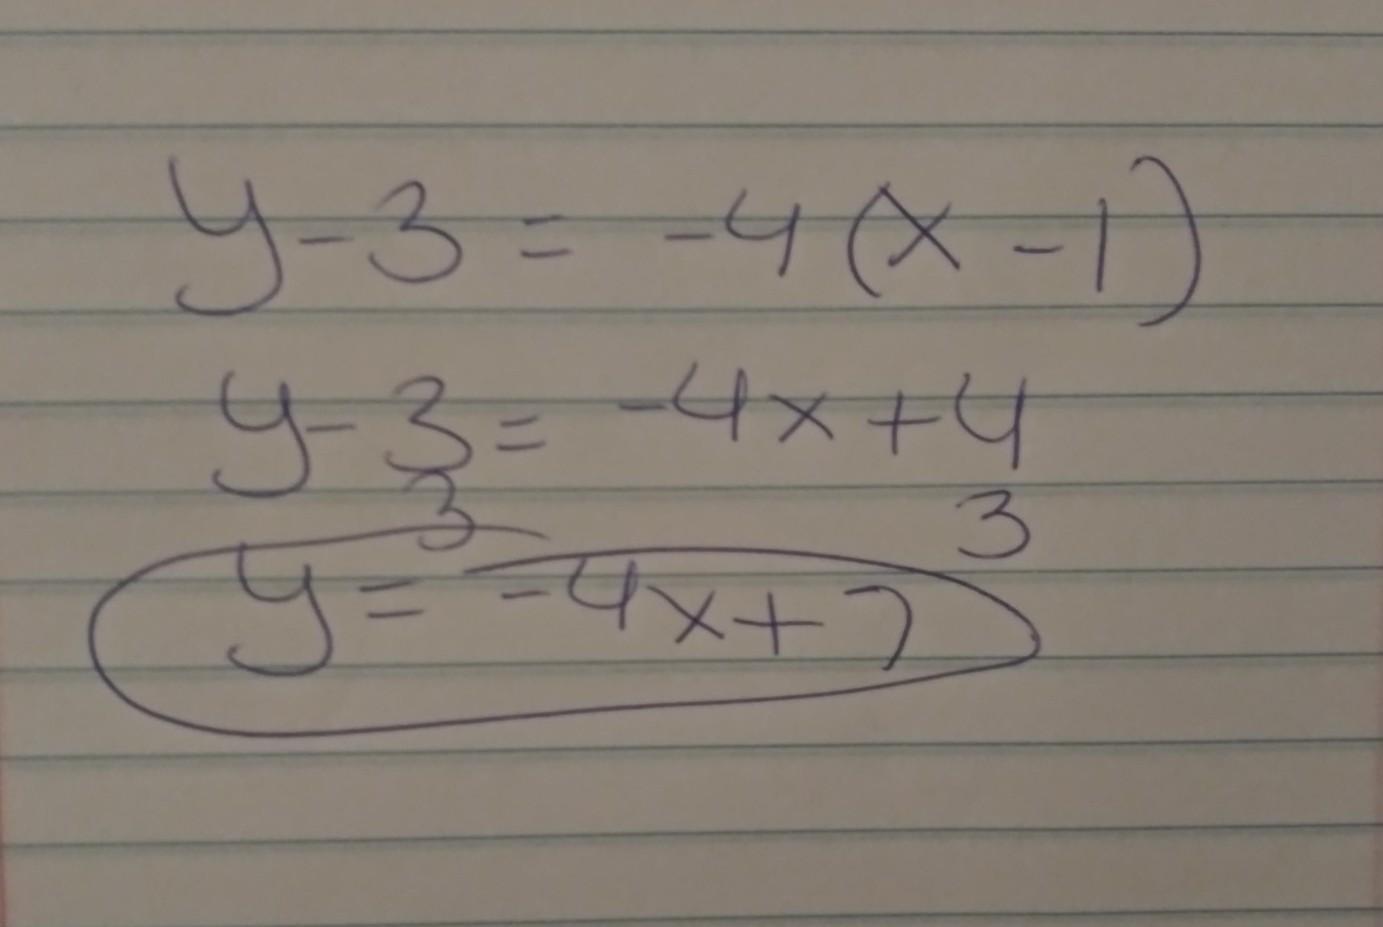 y-3 = -4(x-1)
y-3 = -4x+4
3 3
y = -4x+7